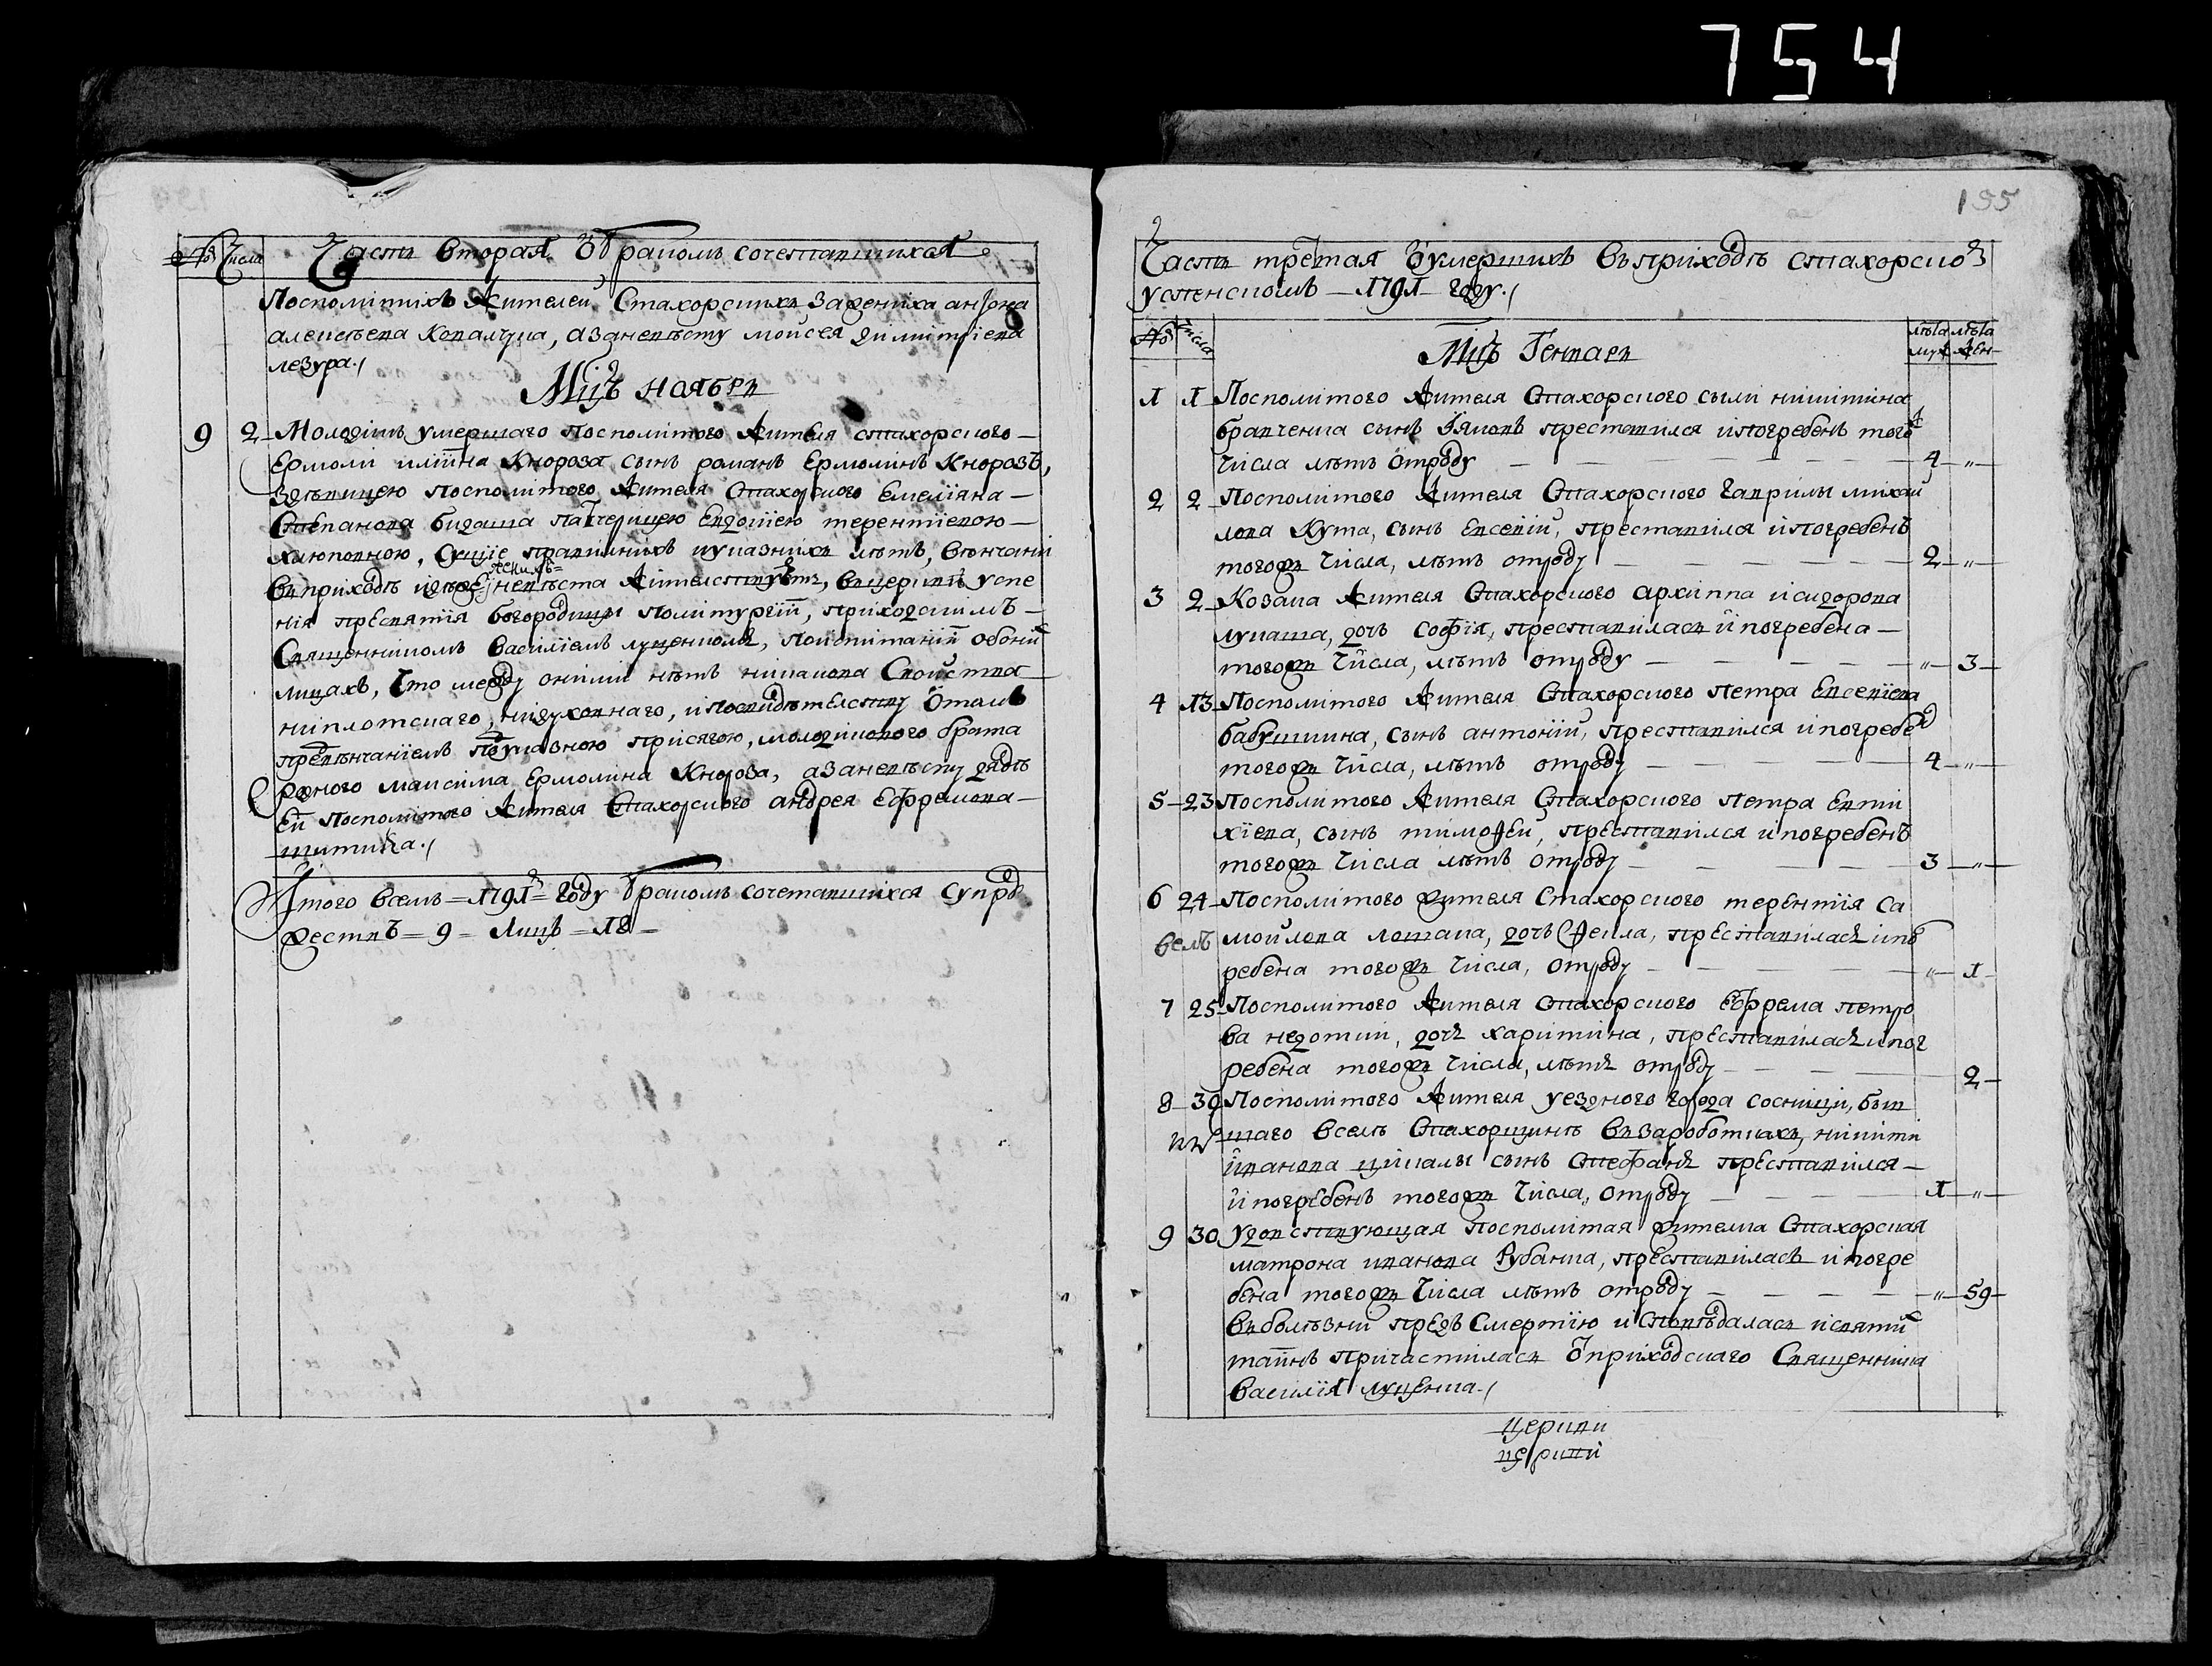 754
№ Числа Часть вторая о бракомъ сочетавшихся
Посполитихъ жителей Стахорскихъ за жениха анѳона
алексѣева Ковалчука, а за невѣсту мойсея димитріева
лезура./
Мцъ ноябрь
9 2 Молодикъ умершаго посполитого жителя стахорского
Ермоли сынъ романъ Ермолинъ Кнорозъ,
з дѣвицею посполитого жителя Стахорского Емеліана
Степанова падчерицею Евдокіею терентіевою
сущіе правилнихъ и указнихъ лѣтъ, вѣнчани
въ приходѣ жителствуетъ, въ церкви успе
нія пресвятія богородици по литургіи, приходскимъ
Священникомъ василіемъ луценкомъ, по испитаніи о боихъ
лицахъ, что между оними нѣтъ никакова свойства
ни плотскаго, ни духовнаго, и по свидѣтелству о томъ
предъ вѣнчаніемъ под указною присягою, молодикового брата
родного максима Ермолина Кнороза, а за невѣсту дядѣ
ей посполитого жителя Стахорского андрея Ефремова
шитика./
Итого всемъ = 1791 = году бракомъ сочетавшихся супру
жествъ = 9 = лицъ = 18 =
195
Часть третая о умершихъ въ приходѣ стахорско
успенскомъ 1791 году./
№ числа Мцъ Генварь лѣта муж лѣта жен
1 1 Посполитого жителя Стахорского сели никитина
сынъ Іяковъ преставился и погребенъ того ж
числа лѣтъ отроду 4 "
2 2 Посполитого жителя Стахорского гаврили михай
лова Кута, сынъ Евсевій, преставился и погребенъ
тогожъ числа, лѣтъ отроду 2 "
3 2 Козака жителя Стахорского архиппа исидорова
лукаша, дочъ Софія, преставилась и погребена
тогожъ числа, лѣтъ отроду " 3
4 13 Посполитого жителя Стахорского петра Евсевіева
бабушкина, сынъ антоній, преставился и погребен
тогожъ числа, лѣтъ отроду 4 "
5 23 Посполитого жителя Стахорского петра Евти
хіева, сынъ тимоѳей, преставился и погребенъ
тогожъ числа лѣтъ отроду 3 "
6 24 Посполитого жителя Стахорского терентія са
мойлова дочъ Ѳекла, преставилась и пог
ребена тогожъ числа, отроду " 1
7 25 Посполитого жителя Стахорского Ефрема петро
ва дочъ харитина, преставилась и пог
ребена тогожъ числа, лѣтъ отроду 2
8 30 Посполитого жителя уездного города сосници, бив
шаго в селѣ Стахорщинѣ въ заработкахъ, никити
иванова цикали сынъ Стефанъ преставился
и погребенъ тогожъ числа, отроду 1 "
9 30 Удовствующая посполитая жителка Стахорская
матрона иванова Рубанка, преставилась и погре
бена тогожъ числа лѣтъ отроду " 59
въ болѣзни предъ смертію исповѣдалась и святих
таинъ причастилась от приходскаго священника
василія луценка./
церкви
церкви